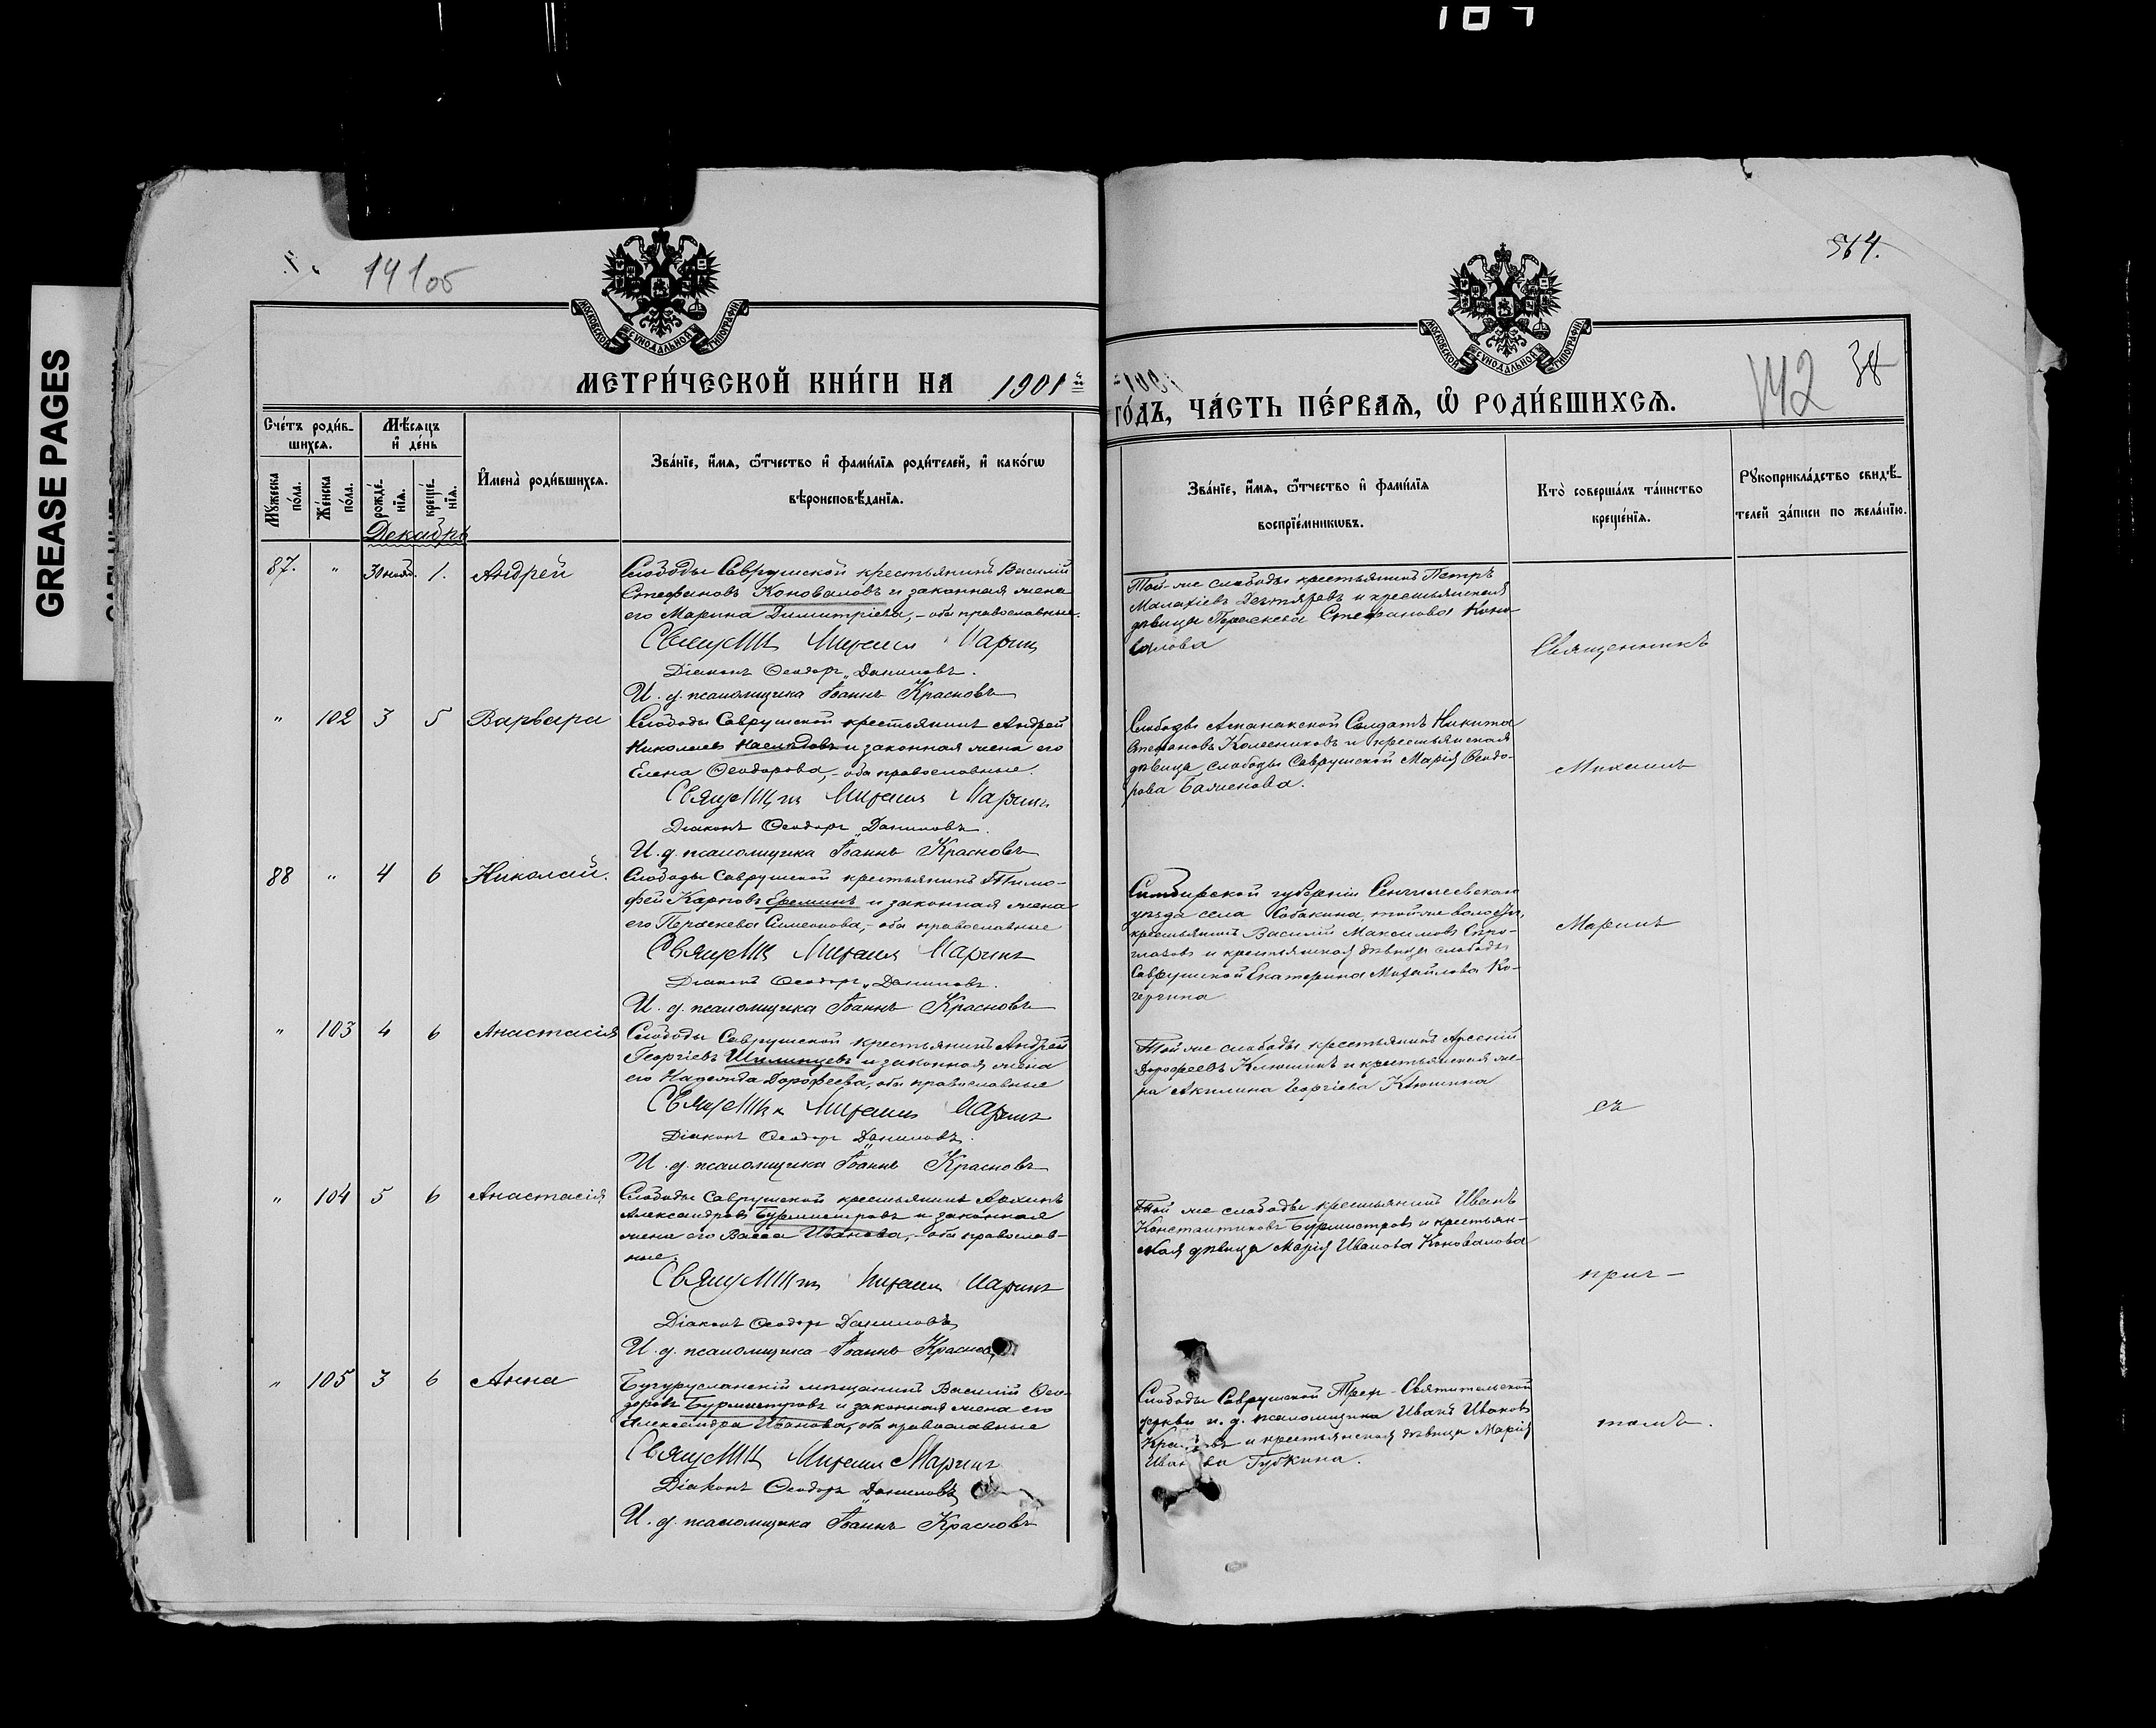 187
GREASE PAGES
14 1об
564.
МОСКОВСКОЙ СУНОДАЛЬНОЙ ТИПОГРАФІИ
МОСКОВСКОЙ СУНОДАЛЬНОЙ ТИПОГРАФІИ
142 38
МЕТРИ́ЧЕСКОЙ КНИ́ГИ НА 1901й
ГО́ДЪ, ЧА́СТЬ ПЕ́РВАЯ, Ѡ҆ РОДИ́ВШИХСЯ.
Сче́тъ роди́вшихся.
Мꙋ́жеска по́ла.
Же́нска по́ла.
Мѣ́сяцъ и҆ де́нь
рожде́нїя.
креще́нїя.
И҆мена̀ роди́вшихся.
Зва́нїе, и҆́мя, ѻ҆́тчество и҆ фами́лїя роди́телей, и҆ како́гѡ
вѣроисповѣ́данїя.
Зва́нїе, и҆́мя, ѻ҆́тчество и҆ фами́лїя
воспрїе́мникѡвъ.
Кто̀ соверша́лъ та́инство
креще́нїя.
Рꙋкоприкла́дство свидѣ́телей за́писи по жела́нїю.
Декабрь
87. " 30 нояб. 1. Андрей
Слободы Саврушской крестьянинъ Василій
Стефановъ Коноваловъ и законная жена
его Марина Димитріева, - оба православные.
Священникъ Михаилъ Маринъ
Діаконъ Ѳеодоръ Даниловъ.
И. д. псаломщика Іоаннъ Красновъ
Той-же слободы крестьянинъ Петръ
Малахіевъ Дегтяревъ и крестьянская
дѣвица Параскева Стефанова Коно-
валова
Священникъ
" 102 3 5 Варвара
Слободы Саврушской крестьянинъ Андрей
Николаевъ Наслѣдовъ и законная жена его
Елена Ѳеодорова, - оба православные.
Священникъ Михаилъ Маринъ
Діаконъ Ѳеодоръ Даниловъ.
И. д. псаломщика Іоаннъ Красновъ
Слободы Аманакской Солдатъ Никита
Стефановъ Колесниковъ и крестьянская
дѣвица слободы Саврушской Марія Ѳеодо-
рова Баженова.
Михаилъ
88 " 4 6 Николай.
Слободы Саврушской крестьянинъ Тимо-
фей Карповъ Ереминъ и законная жена
его Параскева Симеонова, - оба православные
Священникъ Михаилъ Маринъ
Діаконъ Ѳеодоръ Даниловъ.
И. д. псаломщика Іоаннъ Красновъ
Симбирской губерніи Сенгилеевскаго
уѣзда села Собакина, той же волости,
крестьянинъ Василій Максимовъ
и крестьянская дѣвица слободы
Саврушской Екатерина Михайлова Ко-
чергина
Маринъ
" 103 4 6 Анастасія
Слободы Саврушской крестьянинъ Андрей
Георгіевъ и законная жена
его Надежда Дорофеева, оба православные
Священникъ Михаилъ Маринъ
Діаконъ Ѳеодоръ Даниловъ.
И. д. псаломщика Іоаннъ Красновъ
Той же слободы крестьянинъ Арсеній
Дорофеевъ Клюшинъ и крестьянская же-
на Акилина Георгіева Клюшина
съ
" 104 5 6 Анастасія
Слободы Саврушской крестьянинъ Архипъ
Александровъ Бурмистровъ и законная
жена его Васса Иванова, - оба православ-
ные
Священникъ Михаилъ Маринъ
Діаконъ Ѳеодоръ Даниловъ
И. д. псаломщика Іоаннъ Красновъ
Той же слободы крестьянинъ Иванъ
Константиновъ Бурмистровъ и крестьян-
ская дѣвица Марія Иванова Коновалова
прич-
" 105 3 6 Анна
Бугурусланскій мѣщанинъ Василій Ѳео-
доровъ Бурмистровъ и законная жена его
Александра Иванова, оба православные
Священникъ Михаилъ Маринъ
Діаконъ Ѳеодоръ Даниловъ
И. д. псаломщика Іоаннъ Красновъ
Слободы Саврушской Трех-Святительской
церкви и. д. псаломщика Иванъ Ивановъ
Красновъ и крестьянская дѣвица Марія
Иванова Губкина.
томъ.